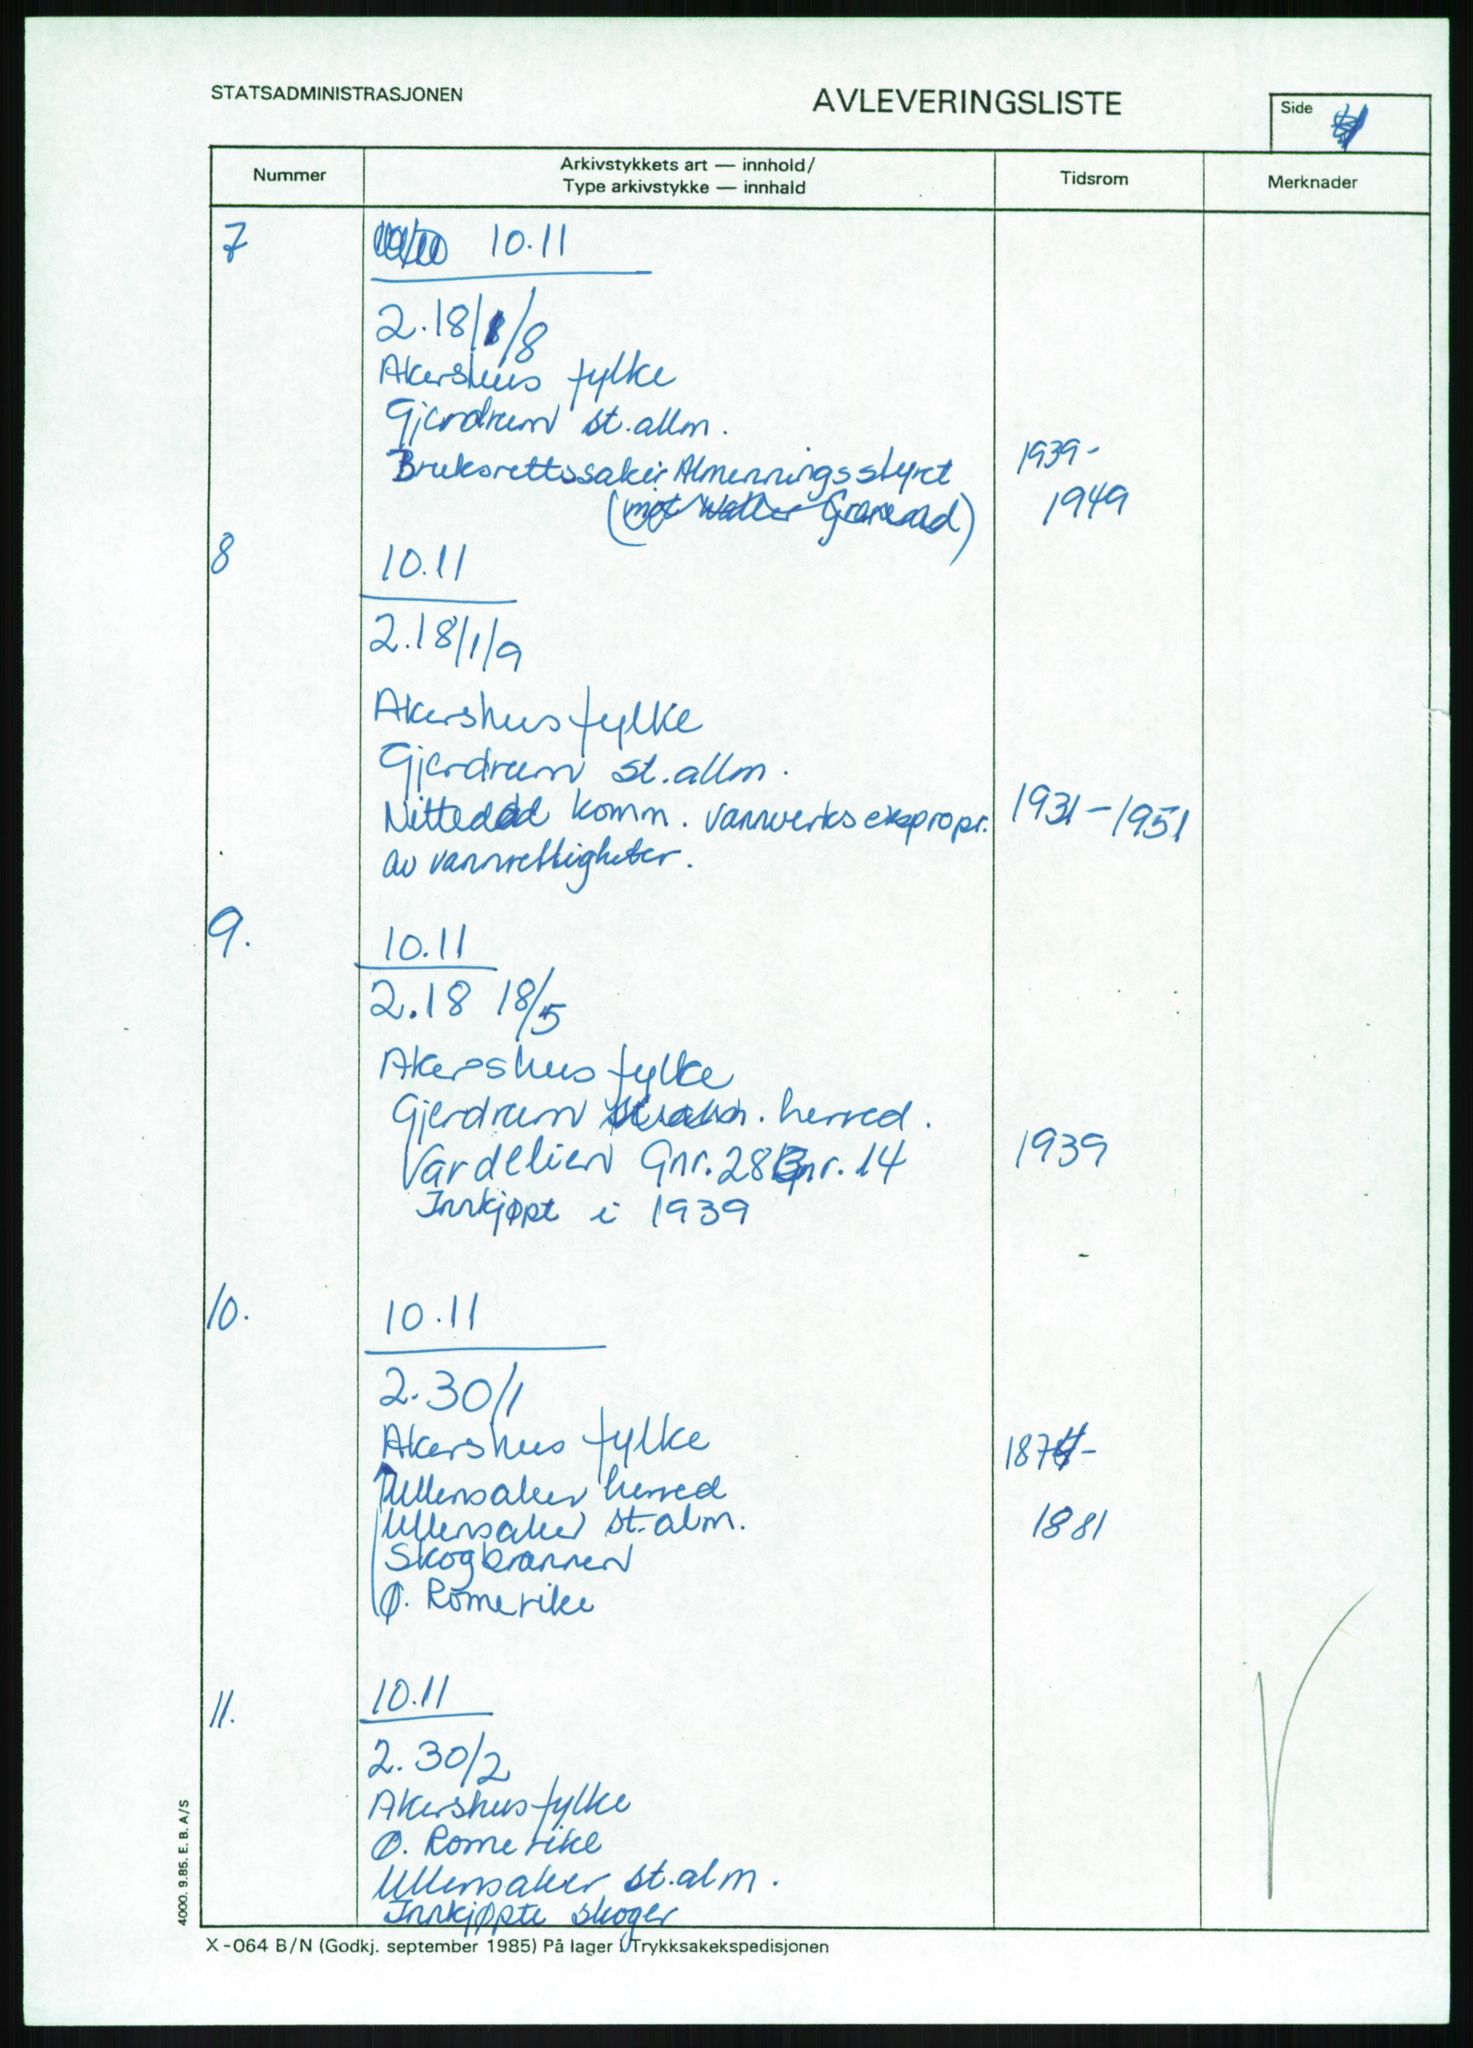 STATSADMINISTRASJONEN
AVLEVERINGSLISTE
Side
Nummer
Arkivstykkets art — innhold/
Type arkivstykke — innhald
Tidsrom
Merknader
7
10.11
2.18/1/8
Akershus fylke
Gjerdrum st.allm.
Bruksrettssaker Almenningsstyret
1939-
(mot Walter
1949
8
10.11
2.18/1/9
Akershus fylke
Gjerdrum st.allm.
Nittedal komm. vannverks ekspropr.
1931-1951
av vannrettigheter.
9.
10.11
2.18 18/5
Akershus fylke
Gjerdrum herred.
Vardelien Gnr. 28 Bnr. 14
1939
Innkjøpt i 1939
10.
10.11
2.30/1
Akershus fylke
1874-
Ullensaker herred
Ullensaker st.alm.
1881
Skogbrannen
Ø. Romerike
11.
10.11
2.30/2
Akershus fylke
Ø. Romerike
Ullensaker st.alm.
Innkjøpte skoger
4000. 9.85. E. B. A/S
X-064 B/N (Godkj. september 1985) På lager i Trykksakekspedisjonen